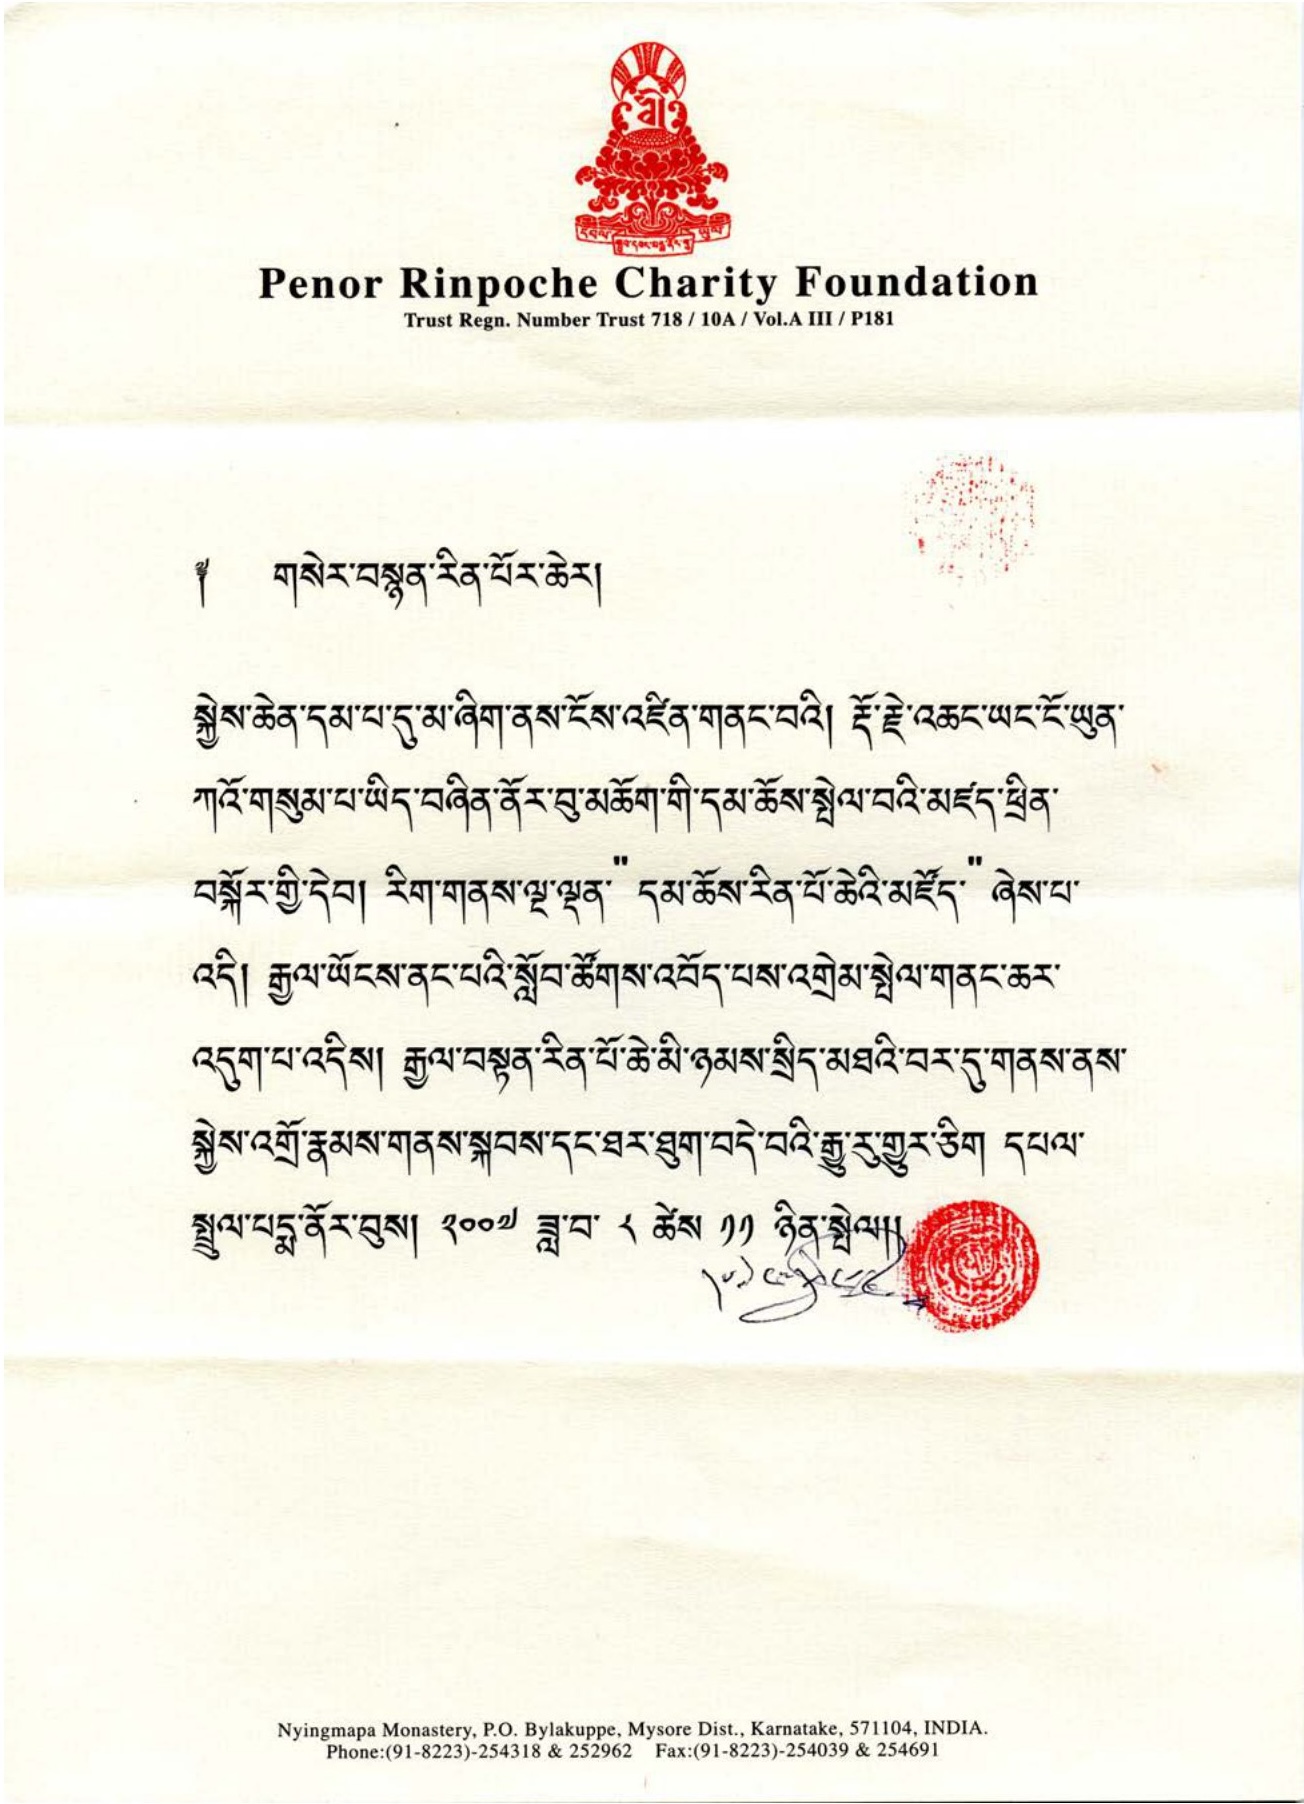 དཔལ་ ཡུལ་
Penor Rinpoche Charity Foundation
Trust Regn. Number Trust 718 / 10A / Vol.A III / P181
༉ གསེར་བསྙན་རིན་པོར་ཆེར།
སྐྱེས་ཆེན་དམ་པ་དུ་མ་ཞིག་ནས་ངོས་འཛིན་གནང་བའི། རྡོ་རྗེ་འཆང་ཡང་ངོ་ཡུན་
ཀའོ་གསུམ་པ་ཡིད་བཞིན་ནོར་བུ་མཆོག་གི་དམ་ཆོས་སྤེལ་བའི་མཛད་ཕྲིན་
བསྐོར་གྱི་དེབ། རིག་གནས་ལྔ་ལྡན་" དམ་ཆོས་རིན་པོ་ཆེའི་མཛོད་" ཞེས་པ་
འདི། རྒྱལ་ཡོངས་ནང་པའི་སློབ་ཚོགས་འབོད་པས་འགྲེམ་སྤེལ་གནང་ཆར་
འདུག་པ་འདིས། རྒྱལ་བསྟན་རིན་པོ་ཆེ་མི་ཉམས་སྲིད་མཐའི་བར་དུ་གནས་ནས་
སྐྱེས་འགྲོ་རྣམས་གནས་སྐབས་དང་ཐར་ཐུག་བདེ་བའི་རྒྱུ་རུ་གྱུར་ཅིག དཔལ་
སྤྲུལ་པདྨ་ནོར་བུས། ༢༠༠༧ ཟླ་བ་ ༨ ཚེས ༡༡ ཉིན་སྤེལ།།
Nyingmapa Monastery, P.O. Bylakuppe, Mysore Dist., Karnatake, 571104, INDIA.
Phone:(91-8223)-254318 & 252962 Fax:(91-8223)-254039 & 254691